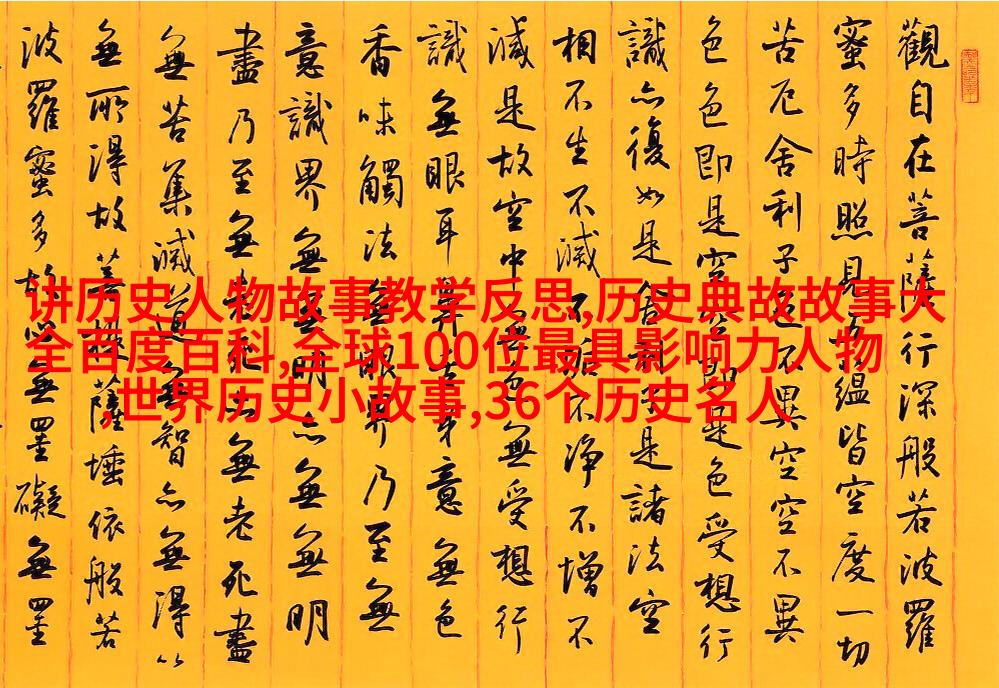 觀自在菩薩行深般若波羅
蜜多時照見五蘊皆空度一切
苦厄舍利子色不異空空不異
色色即是空空即是色受想行
識亦復如是舍利子是諸法空
相不生不滅不垢不淨不增不
減是故空中無色無受想行
識無眼耳鼻舌身意無色
香味觸法無眼界乃至無
意識界無無明亦無無明
盡乃至無老死亦無老死盡
無苦集滅道無智亦無得以
無所得故菩提薩埵依般若
波羅蜜多故心無罣礙無罣
讲历史人物故事教学反思,历史典故故事大
全百度百科,全球100位最具影响力人物
,世界历史小故事,36个历史名人